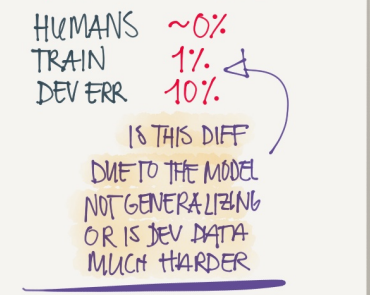 HUMANS ~0%
TRAIN 1%
DEV ERR 10%
IS THIS DIFF
DUE TO THE MODEL
NOT GENERALIZING
OR IS DEV DATA
MUCH HARDER